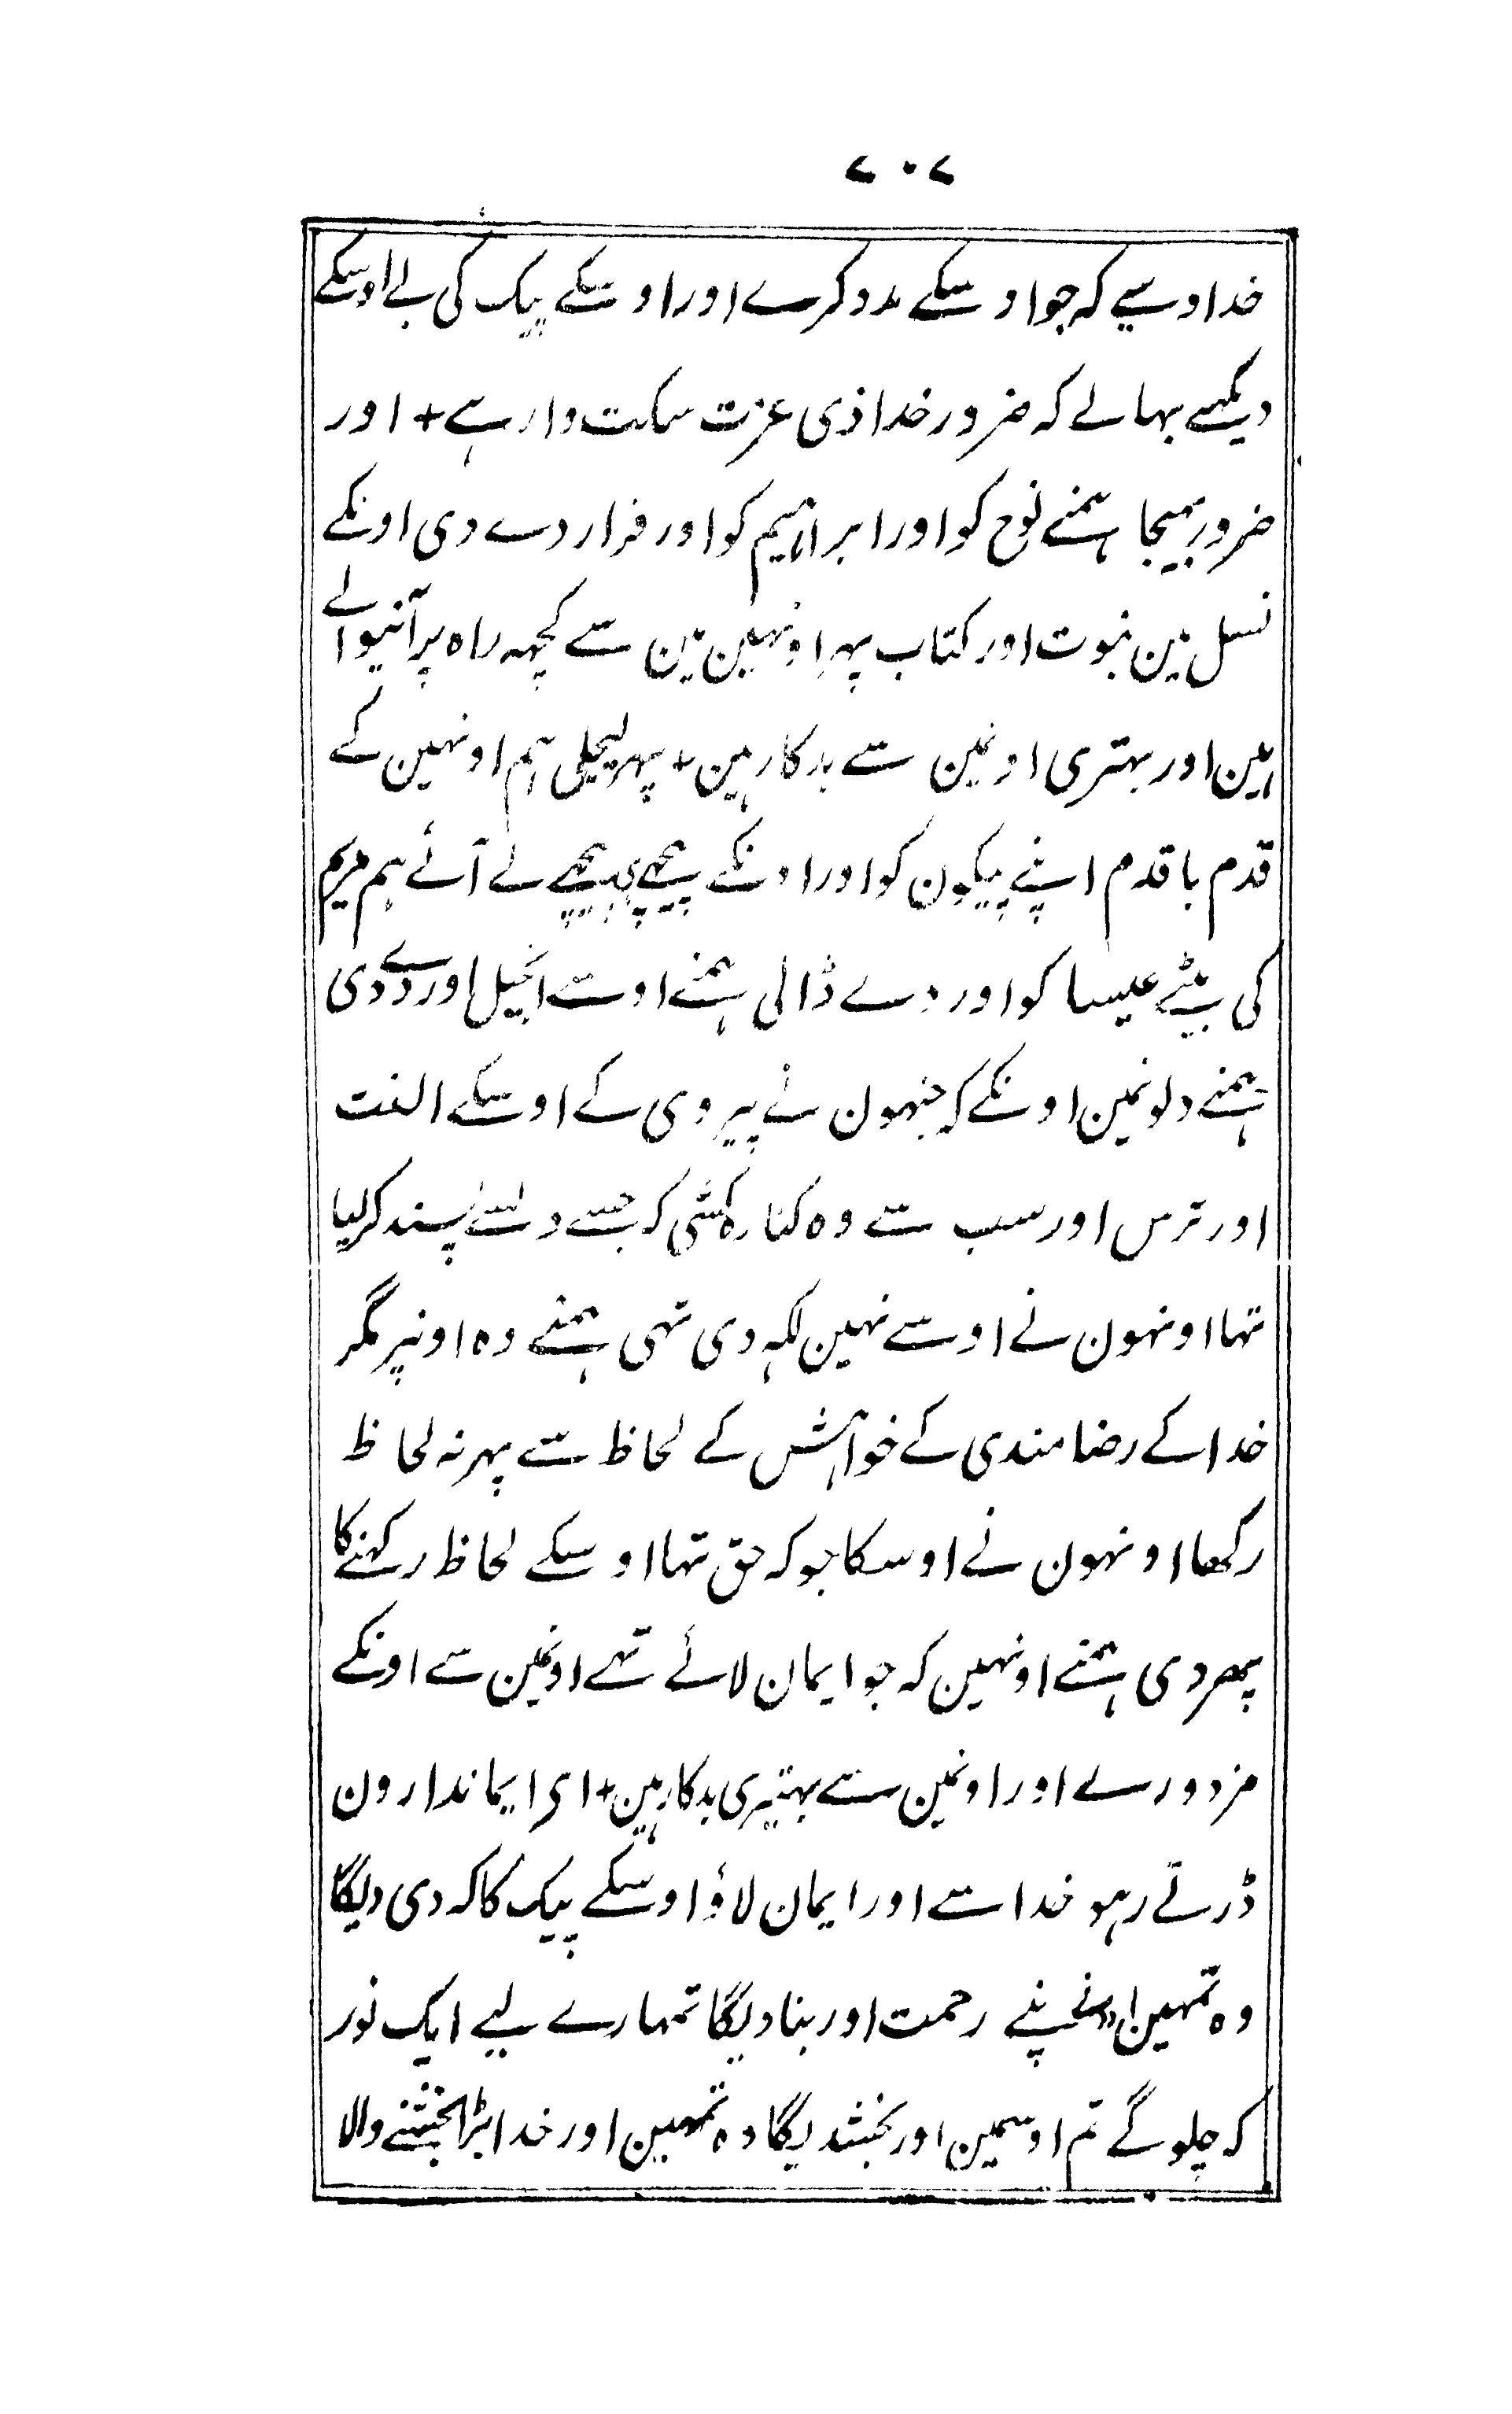 ۷۰۷
خدا وسے کہ جو اوسکے مدد کرے اور اوسکے پیک کی بے اوسکے
دیکہے بہالے کہ ضرور خدا ذی عزت سکت وار ہے + اور
ضرور بہیجا ہمنے نوح کو اور ابراہیم کو اور قرار دے دی اونکے
نسل مین نبوت اور کتاب پہر اونہین مین سے کچہہ راہ پر آنیوالے
ہین اور بہتری اونمین سے بدکار ہین + پہر لیچلی ہم اونہین کے
قدم با قدم اپنے پیکون کو اور اونکے پیچہے پیچہے لے آئے ہم مریم
کی بیٹے عیسا کو اور دے ڈالی ہمنے اوسے انجیل اور دے دی
ہمنے دلونمین اونکے کہ جنہون نے پیروی کے اوسکے الفت
اور ترس اور سب سے وہ کنارہ کشی کہ جسے دلسے پسند کر لیا
تہا اونہون نے اوسے نہین لکہہ دی تہی ہمنے وہ اونپر مگر
خدا کے رضامندی کے خواہش کے لحاظ سے پہر نہ لحاظ
رکھا اونہون نے اوسکا جو کہ حق تہا اوسکے لحاظ رکہنے کا
پھر دی ہمنے اونہین کہ جو ایمان لائے تہے اونمین سے اونکے
مزدورے اور اونمین سے بہتیری بدکار ہین + اے ایماندارون
ڈرتے رہو خدا سے اور ایمان لاؤ اوسکے پیک کا کہ دی دیگا
وہ تمہین اپنے رحمت اور بنا دیگا تمہارے لیے ایک نور
کہ چلو گے تم اوسمین اور بخشدیگا وہ تمہین اور خدا بڑا بخشنے والا